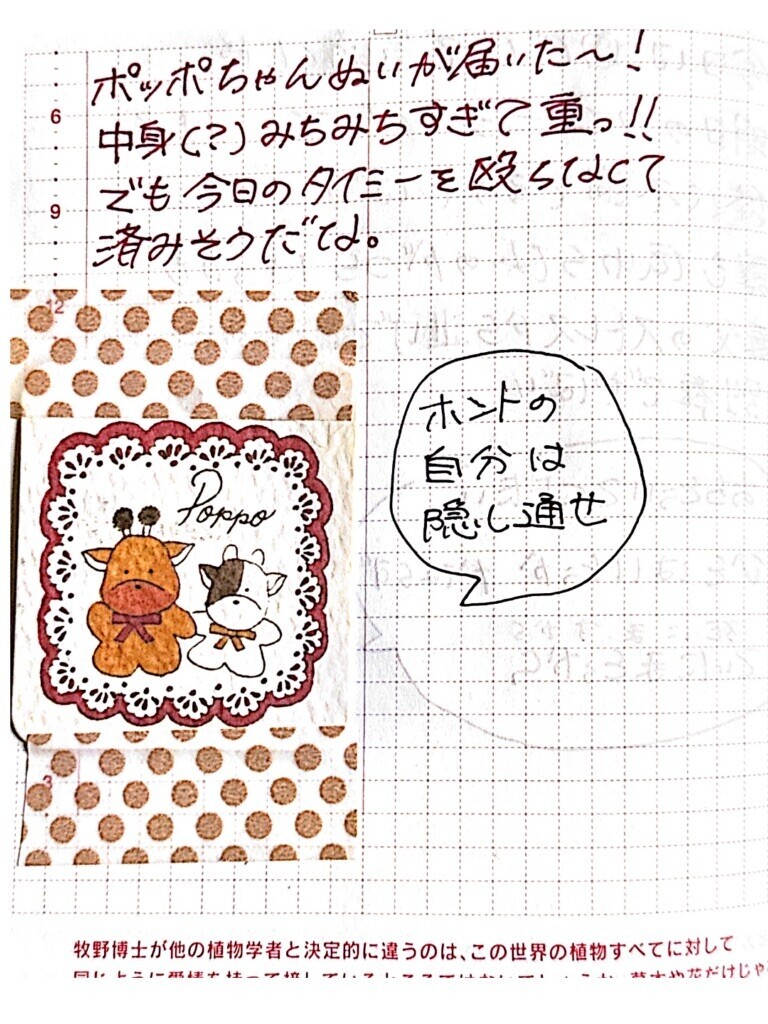 ポッポちゃんぬいが届いた〜!
6
中身(?)みちみちすぎて重っ!!
でも今日のタイミーを殴らなくて
9
済みそうだな。
12
Poppo
ホントの
自分は
隠し通せ
3
牧野博士が他の植物学者と決定的に違うのは、この世界の植物すべてに対して